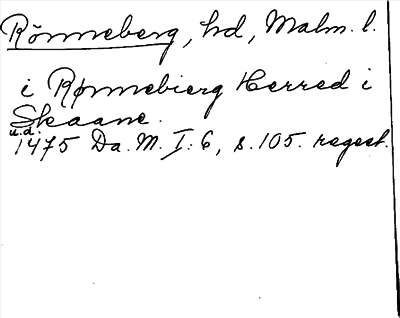 Rönneberg, hd, Malm. l.
i Rønnebierg Herred i
Skaane.
u.d.
1475 Da. M. I: 6, s. 105. regest.